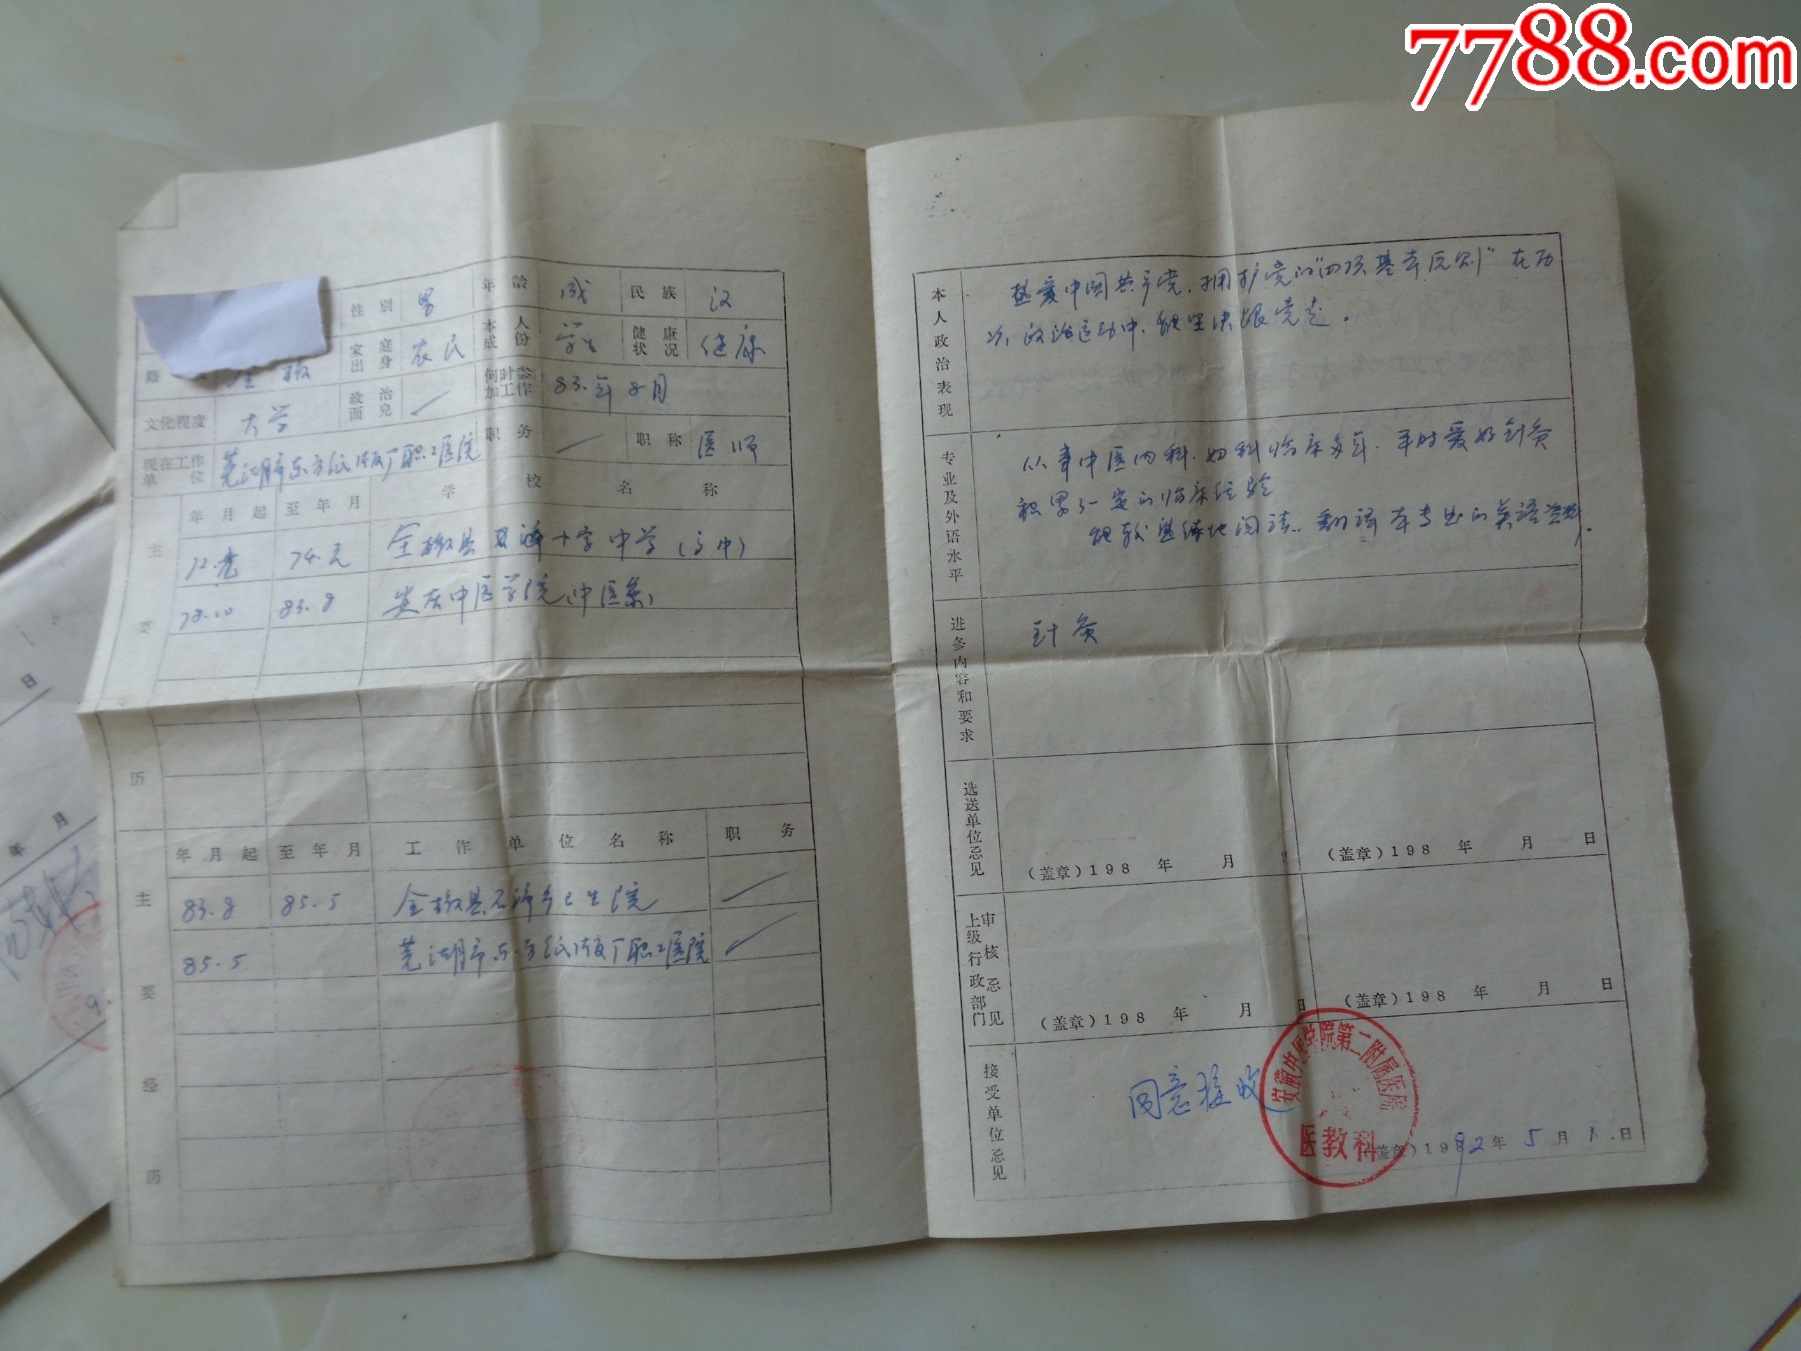 7788.com
性别 男 年龄 成 民族 汉
家庭出身 农民 本人成份 学生 健康状况 健康
籍 全椒
文化程度 大学 政治面貌 何时参加工作 83.年8月
现在工作单位 芜湖市东方纸版厂职工医院 职务 职称 医师
主要历
年月起 至年月 学校名称
74.元 全椒县 十字中学(高中)
78.10 83.8 安庆中医学院(中医系)
主要经历
年月起 至年月 工作单位名称 职务
83.8 85.5 全椒县石沛乡卫生院
85.5 芜湖市东方纸版厂职工医院
本人政治表现
热爱中国共产党,拥护党的"四项基本原则"在历
次政治运动中,能坚决跟党走。
专业及外语水平
从事中医内科.妇科临床多年.平时爱好针灸
积累了一定的临床经验
能较熟练地阅读.翻译本专业的英语资料.
进修内容和要求
针灸
选送单位意见
(盖章)198 年 月
(盖章)198 年 月 日
上级行政部门审核意见
(盖章)198 年 月 日
(盖章)198 年 月 日
接受单位意见
同意接收
安徽中医学院第二附属医院
医教科
(盖章)1992年5月1.日
年 月
日